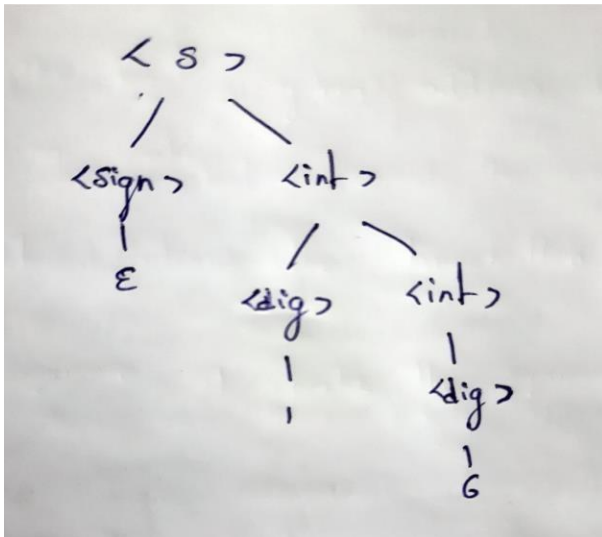 < S >
<sign> <int>
ε <dig> <int>
1 <dig>
6